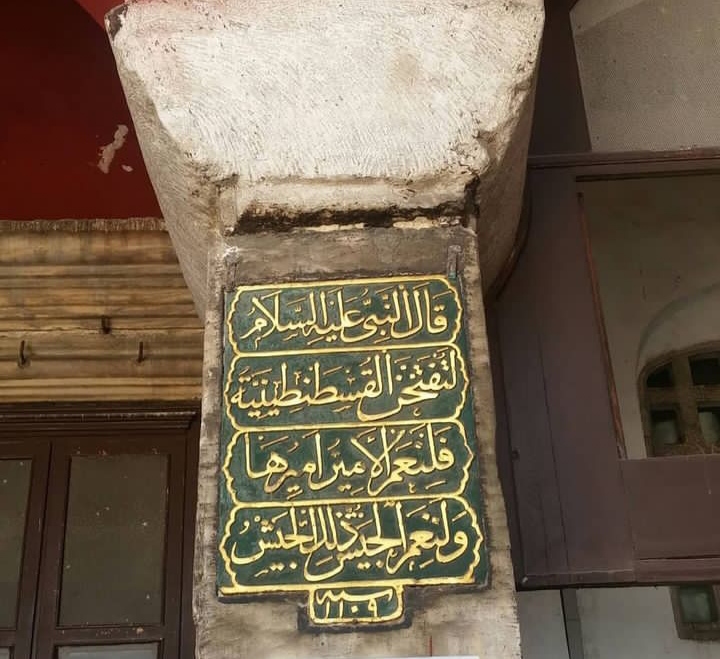 قَالَ النَّبِىُّ عَلَيْهِ السَّلَامُ
لَتُفْتَحَنَّ الْقُسْطَنْطِينِيَّةُ
فَلَنِعْمَ الْاَمِيرُ اَمِيرُهَا
وَلَنِعْمَ الْجَيْشُ ذٰلِكَ الْجَيْشُ
سنه ١١٠٩